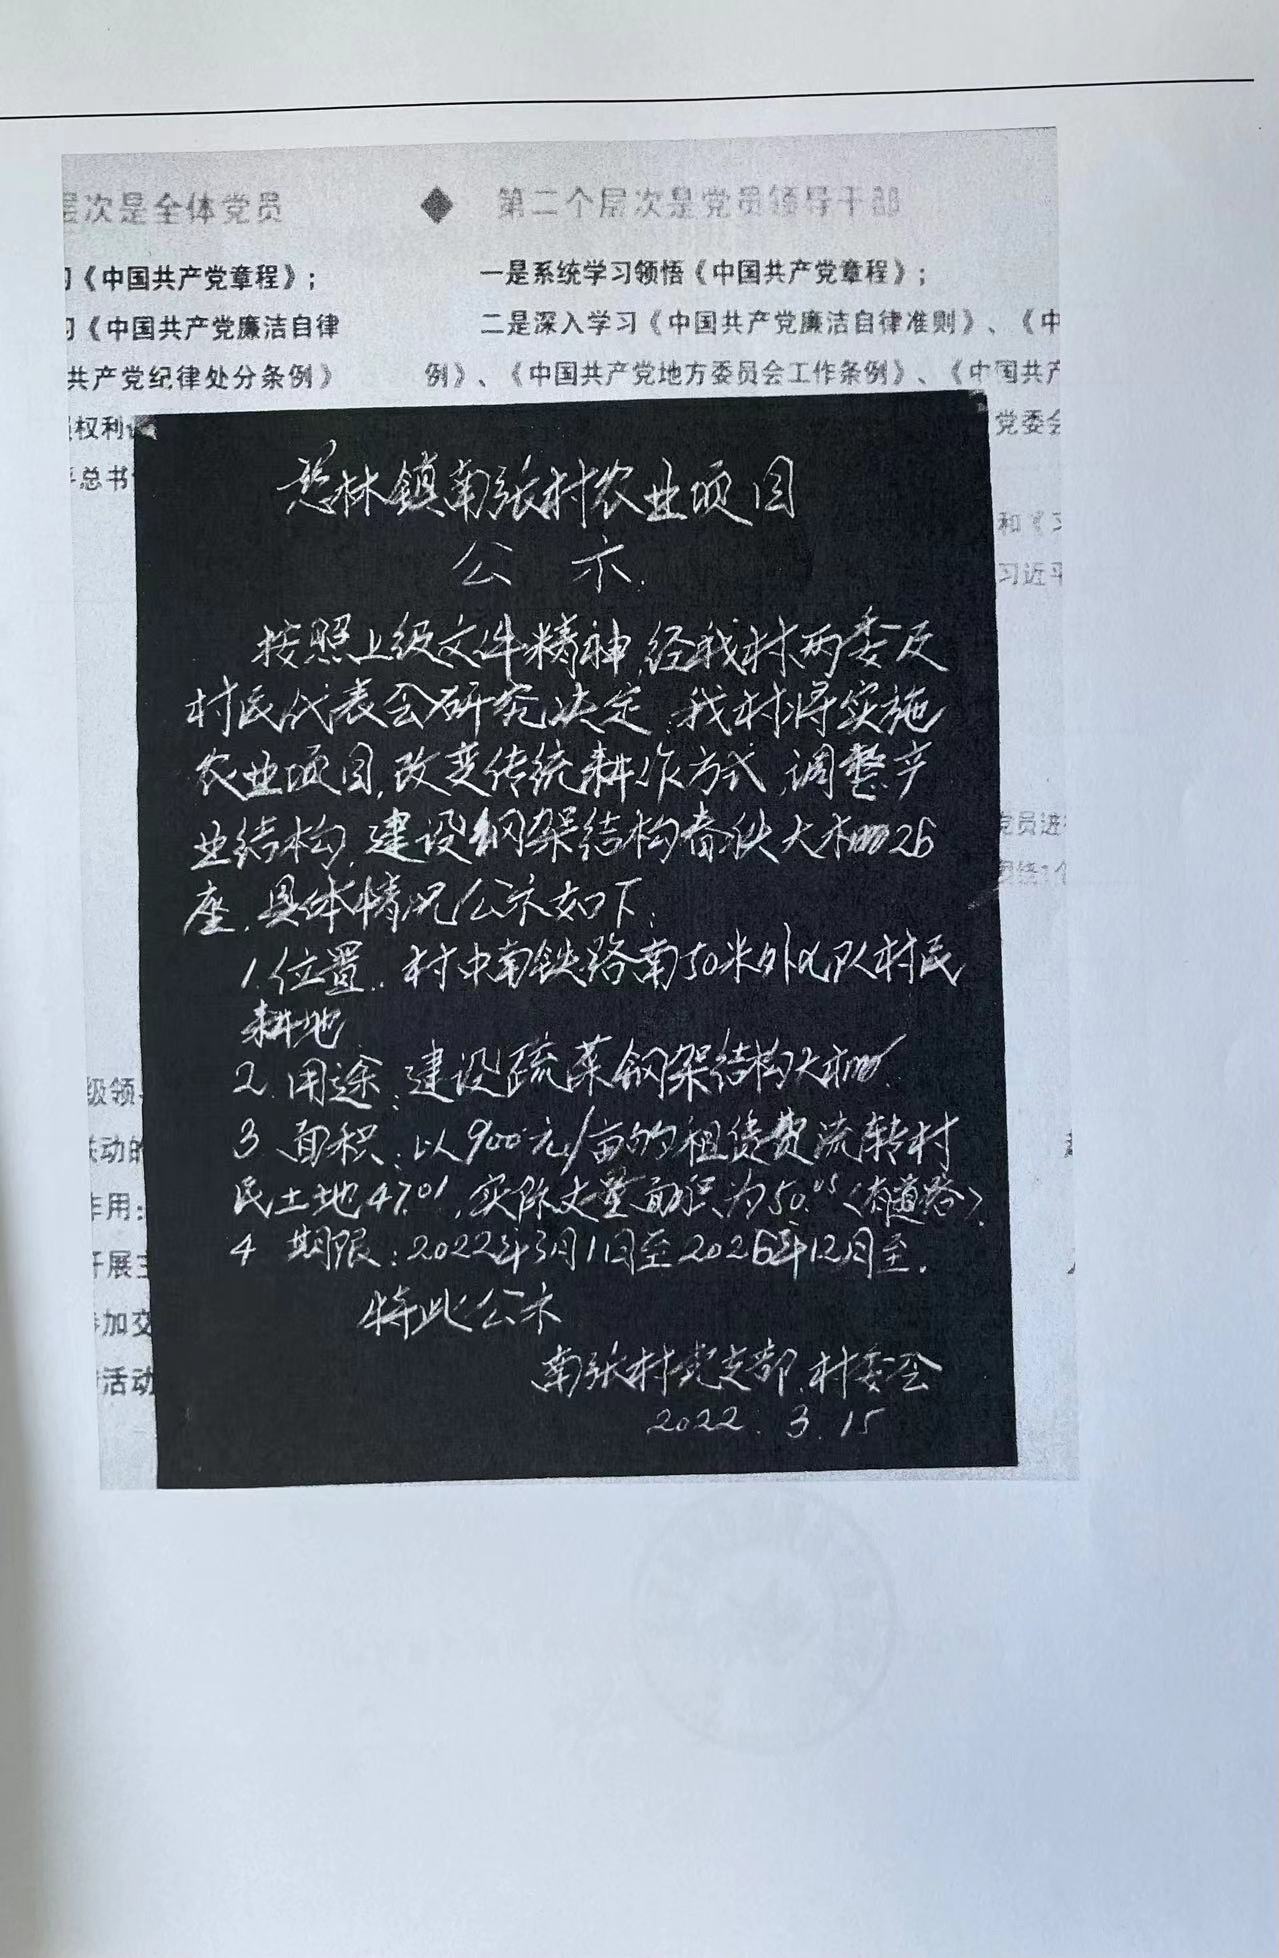 层次是全体党员
◆ 第二个层次是党员领导干部
习《中国共产党章程》；
一是系统学习领悟《中国共产党章程》；
习《中国共产党廉洁自律
二是深入学习《中国共产党廉洁自律准则》、《中
共产党纪律处分条例》
例》、《中国共产党地方委员会工作条例》、《中国共产
权利
党委会
总书
和《
习近平
党员进
慈林镇南张村农业项目
公示
按照上级文件精神,经我村两委及
村民代表会研究决定,我村将实施
农业项目,改变传统耕作方式,调整产
业结构,建设钢架结构春秋大棚26
座,具体情况公示如下:
1.位置:村中南铁路南50米外 队村民
耕地
2.用途:建设蔬菜钢架结构大棚.
3 面积:以900元/亩的租赁费流转村
民土地47.01,实际丈量面积为50.05(有道路).
4 期限:2022年3月1日至2026年12月至.
特此公示
南张村党支部、村委会
2022.3.15
级领
动的
作用:
开展主
参加交
活动